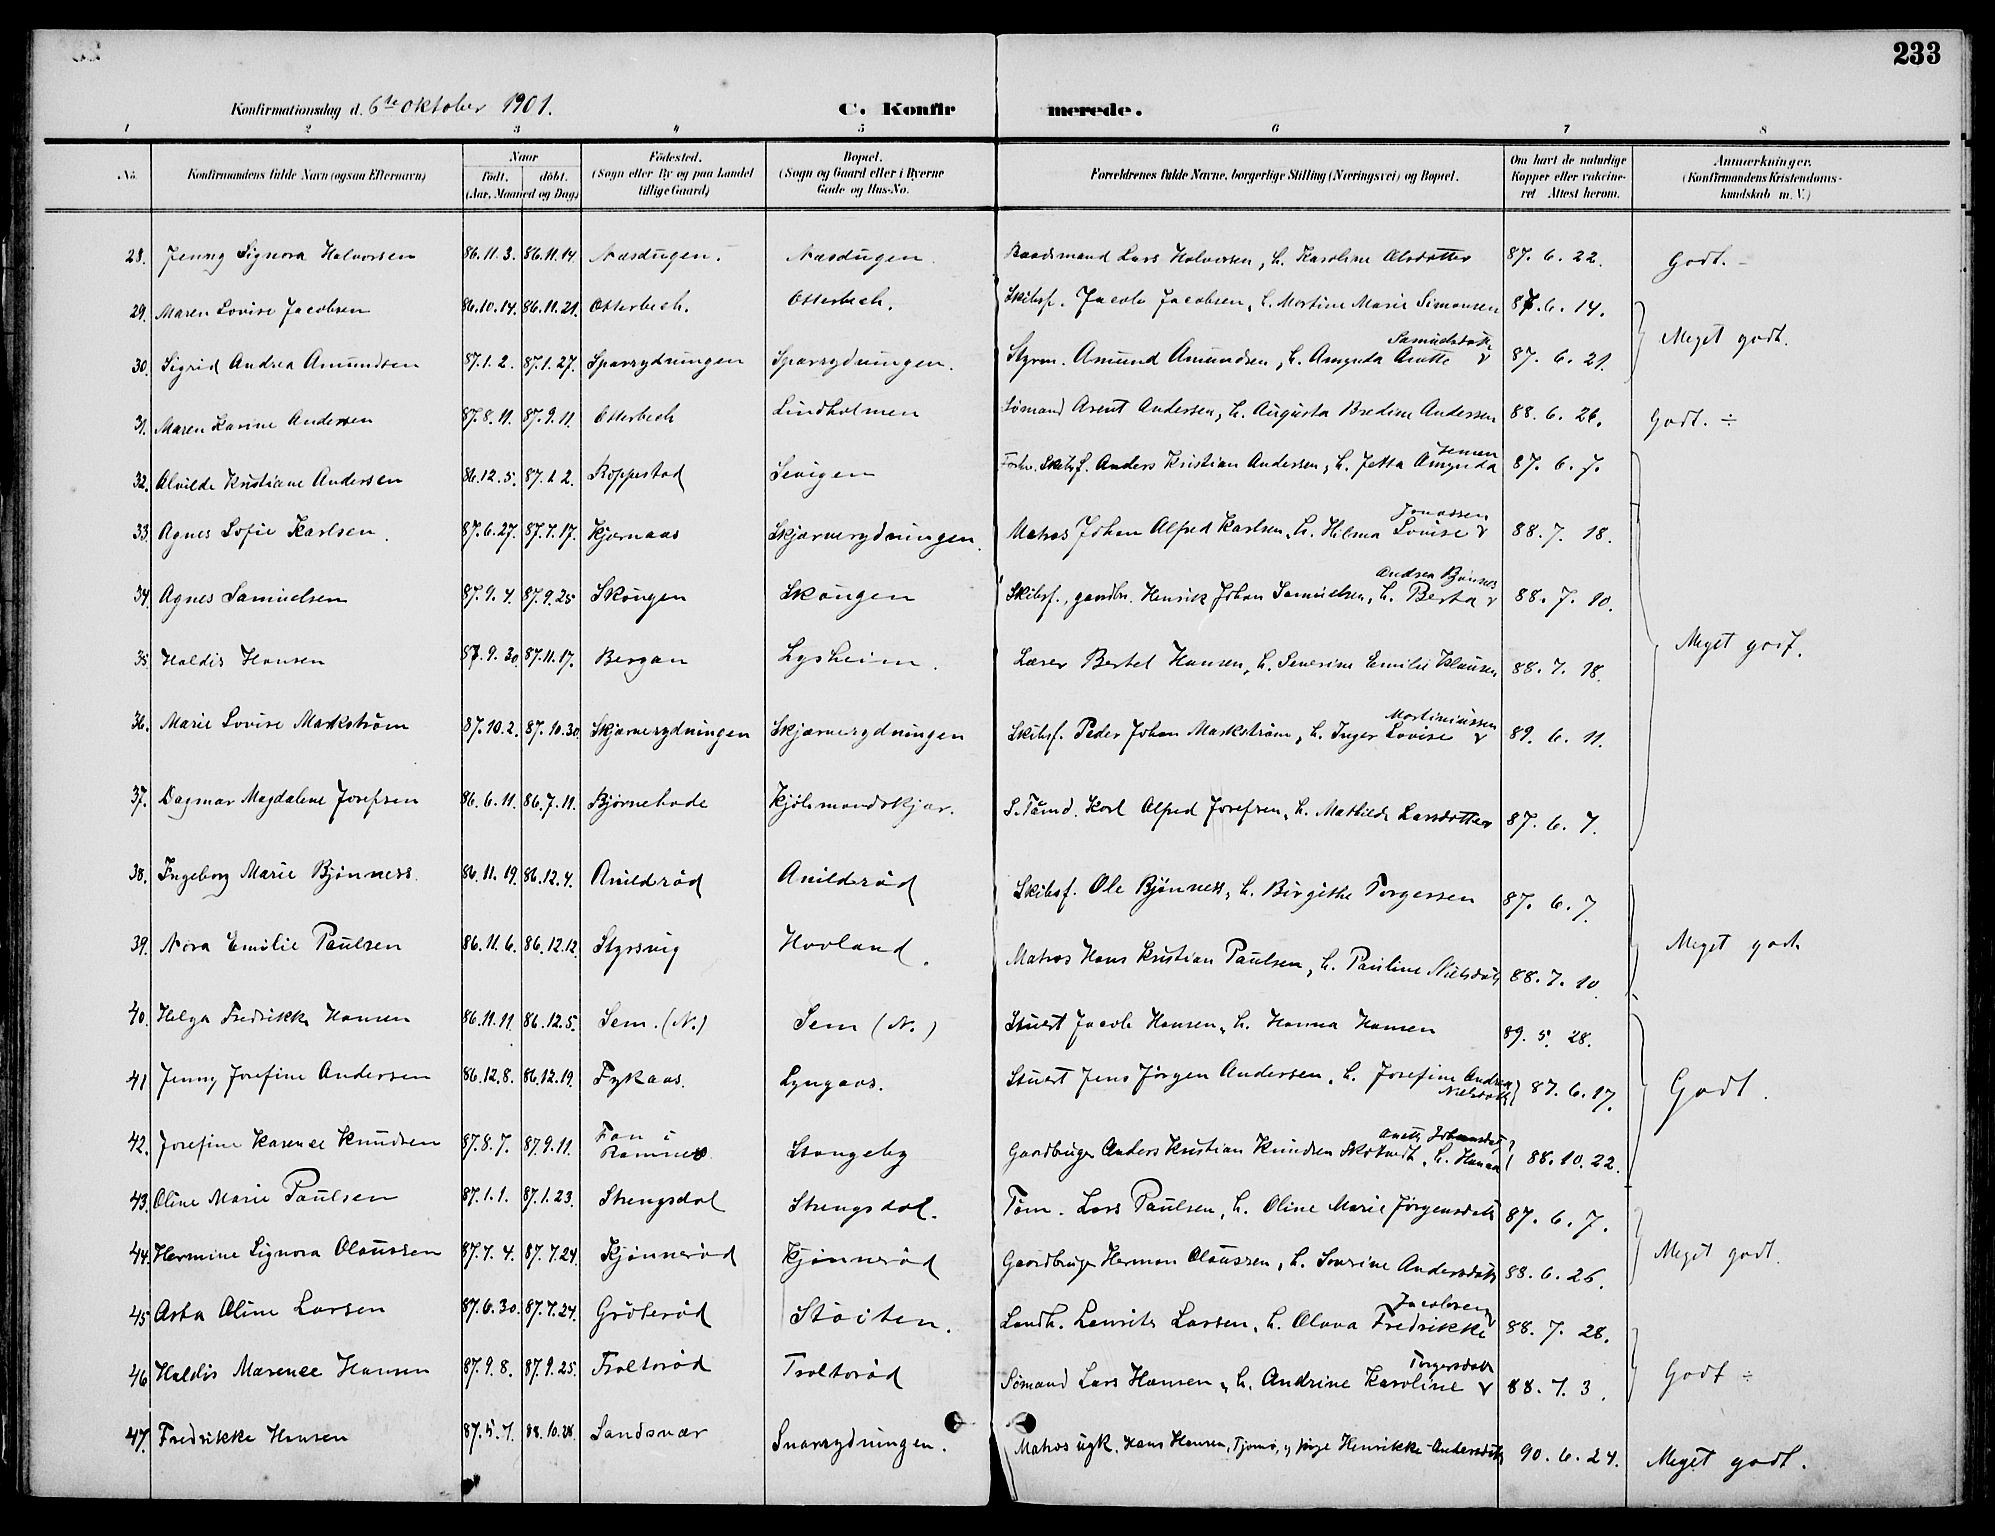 233
Konfirmationsdag d. 6te oktober 1901.
C. Konfir merede.
1 2 3 4 5 6 7 8
No. Konfirmandens fulde Navn (ogsaa Efternavn) Naar født. døbt. (Aar, Maaned og Dag) Fødested. (Sogn eller By og paa Landet tillige Gaard) Bopæl. (Sogn og Gaard eller i Byerne Gade og Hus-No. Forældrenes fulde Navne, borgerlige Stilling (Næringsvei) og Bopæl. Om havt de naturlige Kopper eller vakcineret Attest herom. Anmærkninger. (Konfirmandens Kristendomskundskab m. V.)
28. Jenny Signora Halvorsen 86.11.3. 86.11.14. Næsdugen. Næsdugen. Baadsmand Lars Halvorsen, h. Karoline Olsdatter 87. 6. 22. Godt. -
29. Maren Lovise Jacobsen 86.10.14. 86.11.21. Otterbech. Otterbech. Skibsf. Jacob Jacobsen, h. Martine Marie Simonsen 87. 6. 14.
Meget godt.
30. Sigrid Andrea Amundsen 87.1.2. 87.1.27. Sparrydningen Sparrydningen. Styrm. Amund Amundsen, h. Amynda Anette Samuelsdatt 87. 6. 21.
31. Maren Karine Andersen 87.8.11. 87.9.11. Otterbech Lindholmen Sømand Arent Andersen, h. Augusta Bredine Andersen 88. 6. 26. Godt. ÷
32. Alvilde Kristiane Andersen 86.12.5. 87.1.2. Roppestad Sevigen Forhv. Skibsf. Anders Kristian Andersen, h. Jetta Amynda 87. 6. 7.
33. Agnes Sofie Karlsen. 87.6.27. 87.7.17. Kjærnaas Skjærverydningen. Matros Johan Alfred Karlsen, h. Hilma Lovise Jonassen 88. 7. 18.
34. Agnes Samuelsen 87.9.4. 87.9.25 Skaugen Skaugen Skibsf., gaardbr. Henrik Johan Samuelsen, h. Berta Andrea Bjønnes 88. 7. 10.
35 Haldis Hansen 87.9.30 87.11.17. Bergan Lysheim. Lærer Bertel Hansen, h. Severine Emilie Klausen 88. 7. 18.
Meget godt.
36. Marie Lovise Markstrøm 87.10.2. 87.10.30 Skjærverydningen Skjærverydningen Skibsf. Peder Johan Markstrøm, h. Inger Lovise Martiniussen 89. 6. 11.
37. Dagmar Magdalene Josefsen 86.6.11. 86.7.11. Bjørnebode Kjølmandskjær. S. Tømd. Karl Alfred Josefsen, h. Mathilde Larsdatter 87. 6. 7.
38. Ingeborg Marie Bjønness. 86.11.19. 86.12.4. Arildsrød Arildsrød Skibsf. Ole Bjønness, h. Birgithe Torgersen 87. 6. 7.
39. Nora Emilie Paulsen 86.11.6. 86.12.12. Styrsvig Hovland. Matros Hans Kristian Paulsen, h. Pauline Nielsdatt 88. 7. 10.
Meget godt
40. Helga Fredrikke Hansen 86.11.11. 86.12.5. Sem. (N.) Sem (N.) Stuert Jacob Hansen, h. Hanna Hansen 89. 5. 28.
41 Jenny Josefine Andersen 86.12.8. 86.12.19. Fykaas. Lyngaas. Stuert Jens Jørgen Andersen, h. Josefine Andrea Nielsdatt 87. 6. 17. Godt.
42. Josefine Karence Knudsen 87.8.7. 87.9.11. Fon i Ramnes Stangeby Gaardbruger Anders Kristian Knudsen Skotvedt, h. Hanna Anette Johansdat 88. 10. 22.
43. Oline Marie Paulsen 87.1.1. 87.1.23. Strengsdal Strengsdal. Tøm. Lars Paulsen, h. Oline Marie Jørgensdatt 87. 6. 7.
44. Hermine Signora Olaussen 87.7.4. 87.7.24. Kjønnerød Kjønnerød Gaardbruger Herman Olaussen, h. Severine Andersdatt 88. 6. 26.
Meget godt.
45 Asta Oline Larsen 87.6.30. 87.7.24. Grøterød Støiten. Landh. Laurits Larsen, h. Olava Fredrikke Jacobsen 88. 7. 28.
46 Haldis Marence Hansen 87.9.8. 87.9.25. Troltorød Troltorød Sømand Lars Hansen, h. Andrine Karoline Torgersdatt 88. 7. 3. Godt ÷
47. Fredrikke Hansen 87.5.7. 88.10.28. Sandsvær Snarrydningen. Matros ugk. Hans Hansen, Tjømø, og pige Henrikke Andersdatt 90. 6. 24. Meget godt.